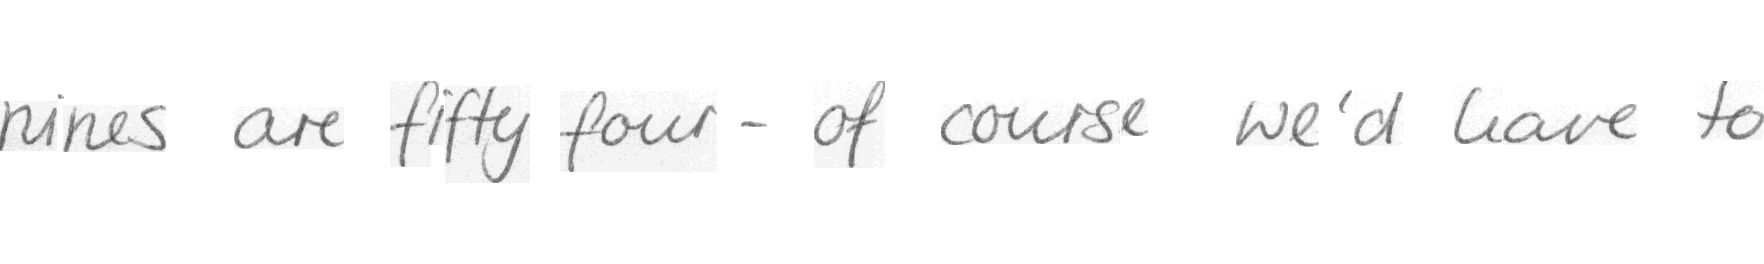 nines are fifty four - of course we'd have to